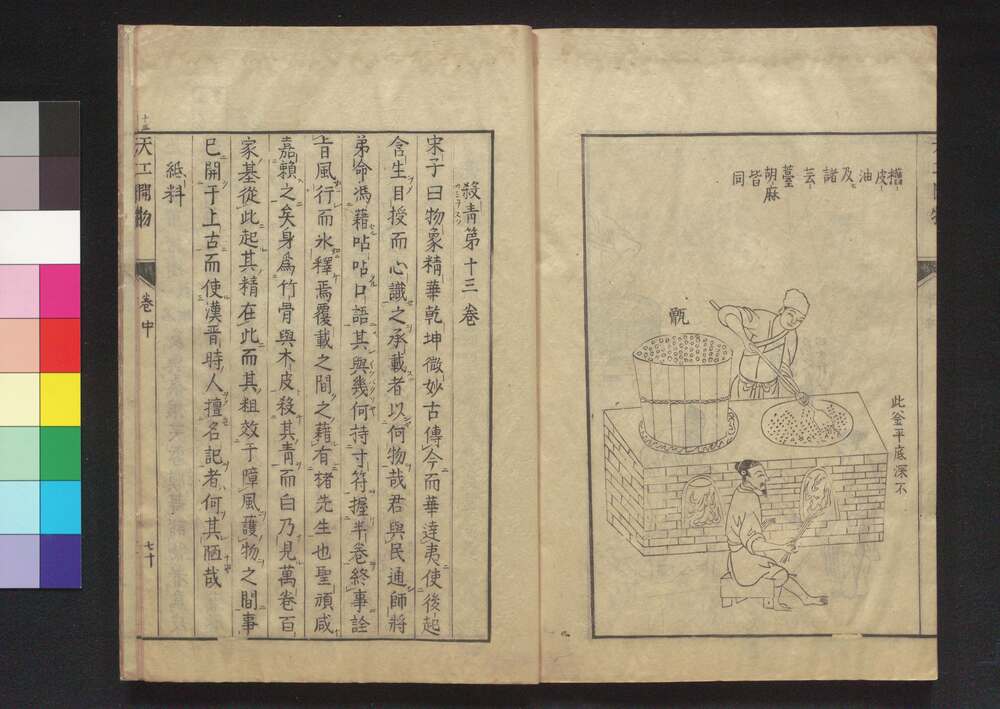 榨皮油及諸芸薹胡麻皆同
甑
此釜平底深不
殺青第十三卷
宋子曰物象精華乾坤微妙古傳今而華達夷使後起
含生目授而心識之承載者以何物哉君與民通師將
弟命馮藉呫呫口語其與幾何持寸符握半卷終事詮
旨風行而氷釋焉覆載之間之藉有楮先生也聖頑咸
嘉賴之矣身爲竹骨與木皮殺其青而白乃見萬卷百
家基從此起其精在此而其粗效于障風護物之間事
已開于上古而使漢晉時人擅名記者何其陋哉
紙料
天工開物
卷中
七十